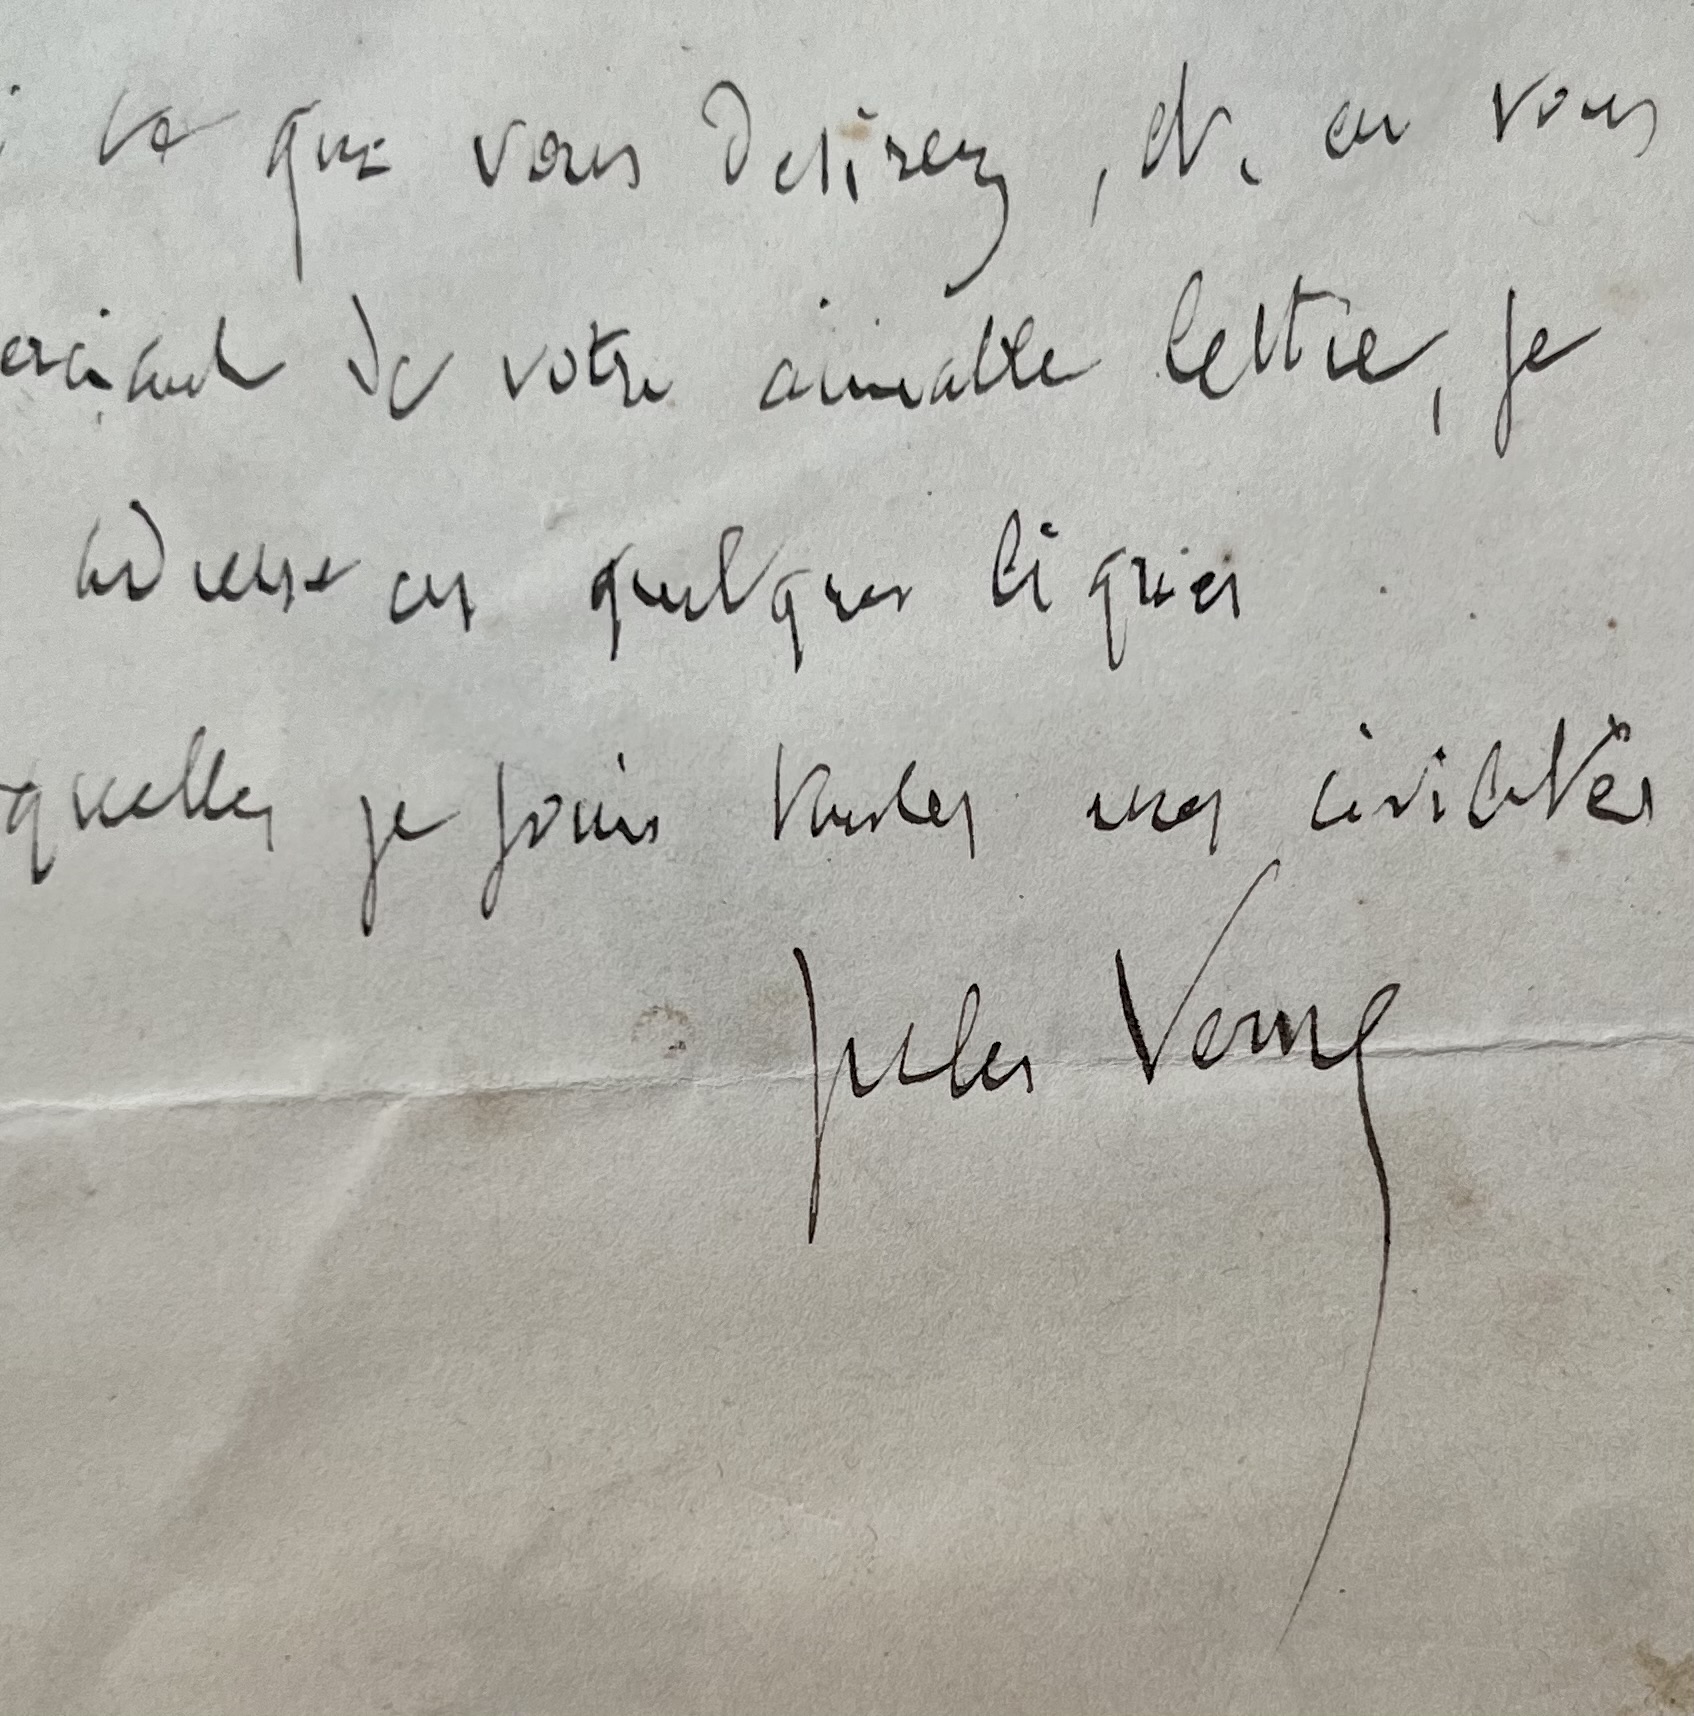 ce que vous desirez, et, en vous
erciant de votre aimable lettre, je
adresse ces quelques lignes
quelles je joins toutes mes civilités
Jules Verne